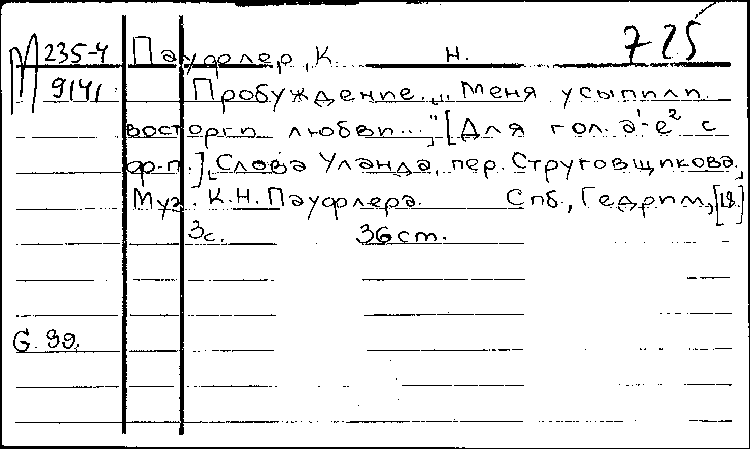 М 235-4 Пауфлер, К. Н. 725
9141 Пробуждение. „Меня усыпили
восторги любви..." [Для гол. a¹-e² с
ф-п.] Слова Уланда, пер. Струговщикова.
Муз. К.Н. Пауфлера. Спб., Гедрим, [18.]
3с. 36 cm.
G. 99.